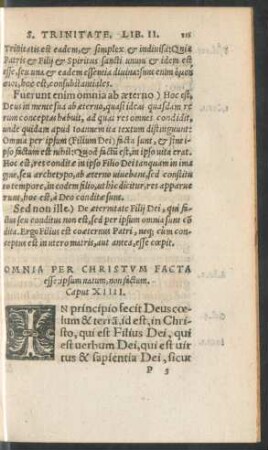 S. TRINITATE. LIB. II.
Trinitatis est eadem, & simplex & indiuisa: Quia
Patris & Filij & Spiritus sancti unum & idem est
esse, seu una, & eadem essentia diuina: sunt enim
hoc est, consubstantiales.
Fuerunt enim omnia ab æterno) Hoc est,
Deus in mente sua ab æterno, quasi ideas quasdam re
rum conceptas habuit, ad quas res omnes condidit,
unde quidam apud Ioannem ita textum distinguunt:
Omnia per ipsum (Filium Dei) facta sunt, & sine i-
pso factum est nihil: Quod factum est, in ipso uita erat.
Hoc est, res conditæ in ipso Filio Dei tanquam in ima
gine, seu archetypo, ab æterno uiuebant, sed constitu
to tempore, in eodem filio, ut hic dicitur, res apparue
runt, hoc est, à Deo conditæ sunt.
Sed non ille.) De æternitate Filij Dei, qui fi-
lius seu conditus non est, sed per ipsum omnia sunt cõ
dita. Ergo Filius est coæternus Patri, neq; cum con-
ceptus est in utero matris, aut antea, esse cœpit.
OMNIA PER CHRISTVM FACTA
esse: ipsum natum, non factum.
Caput XIIII.
IN principio fecit Deus cœ-
lum & terrã, id est, in Chri-
sto, qui est Filius Dei, qui
est uerbum Dei, qui est uir
tus & sapientia Dei, sicut
P 3